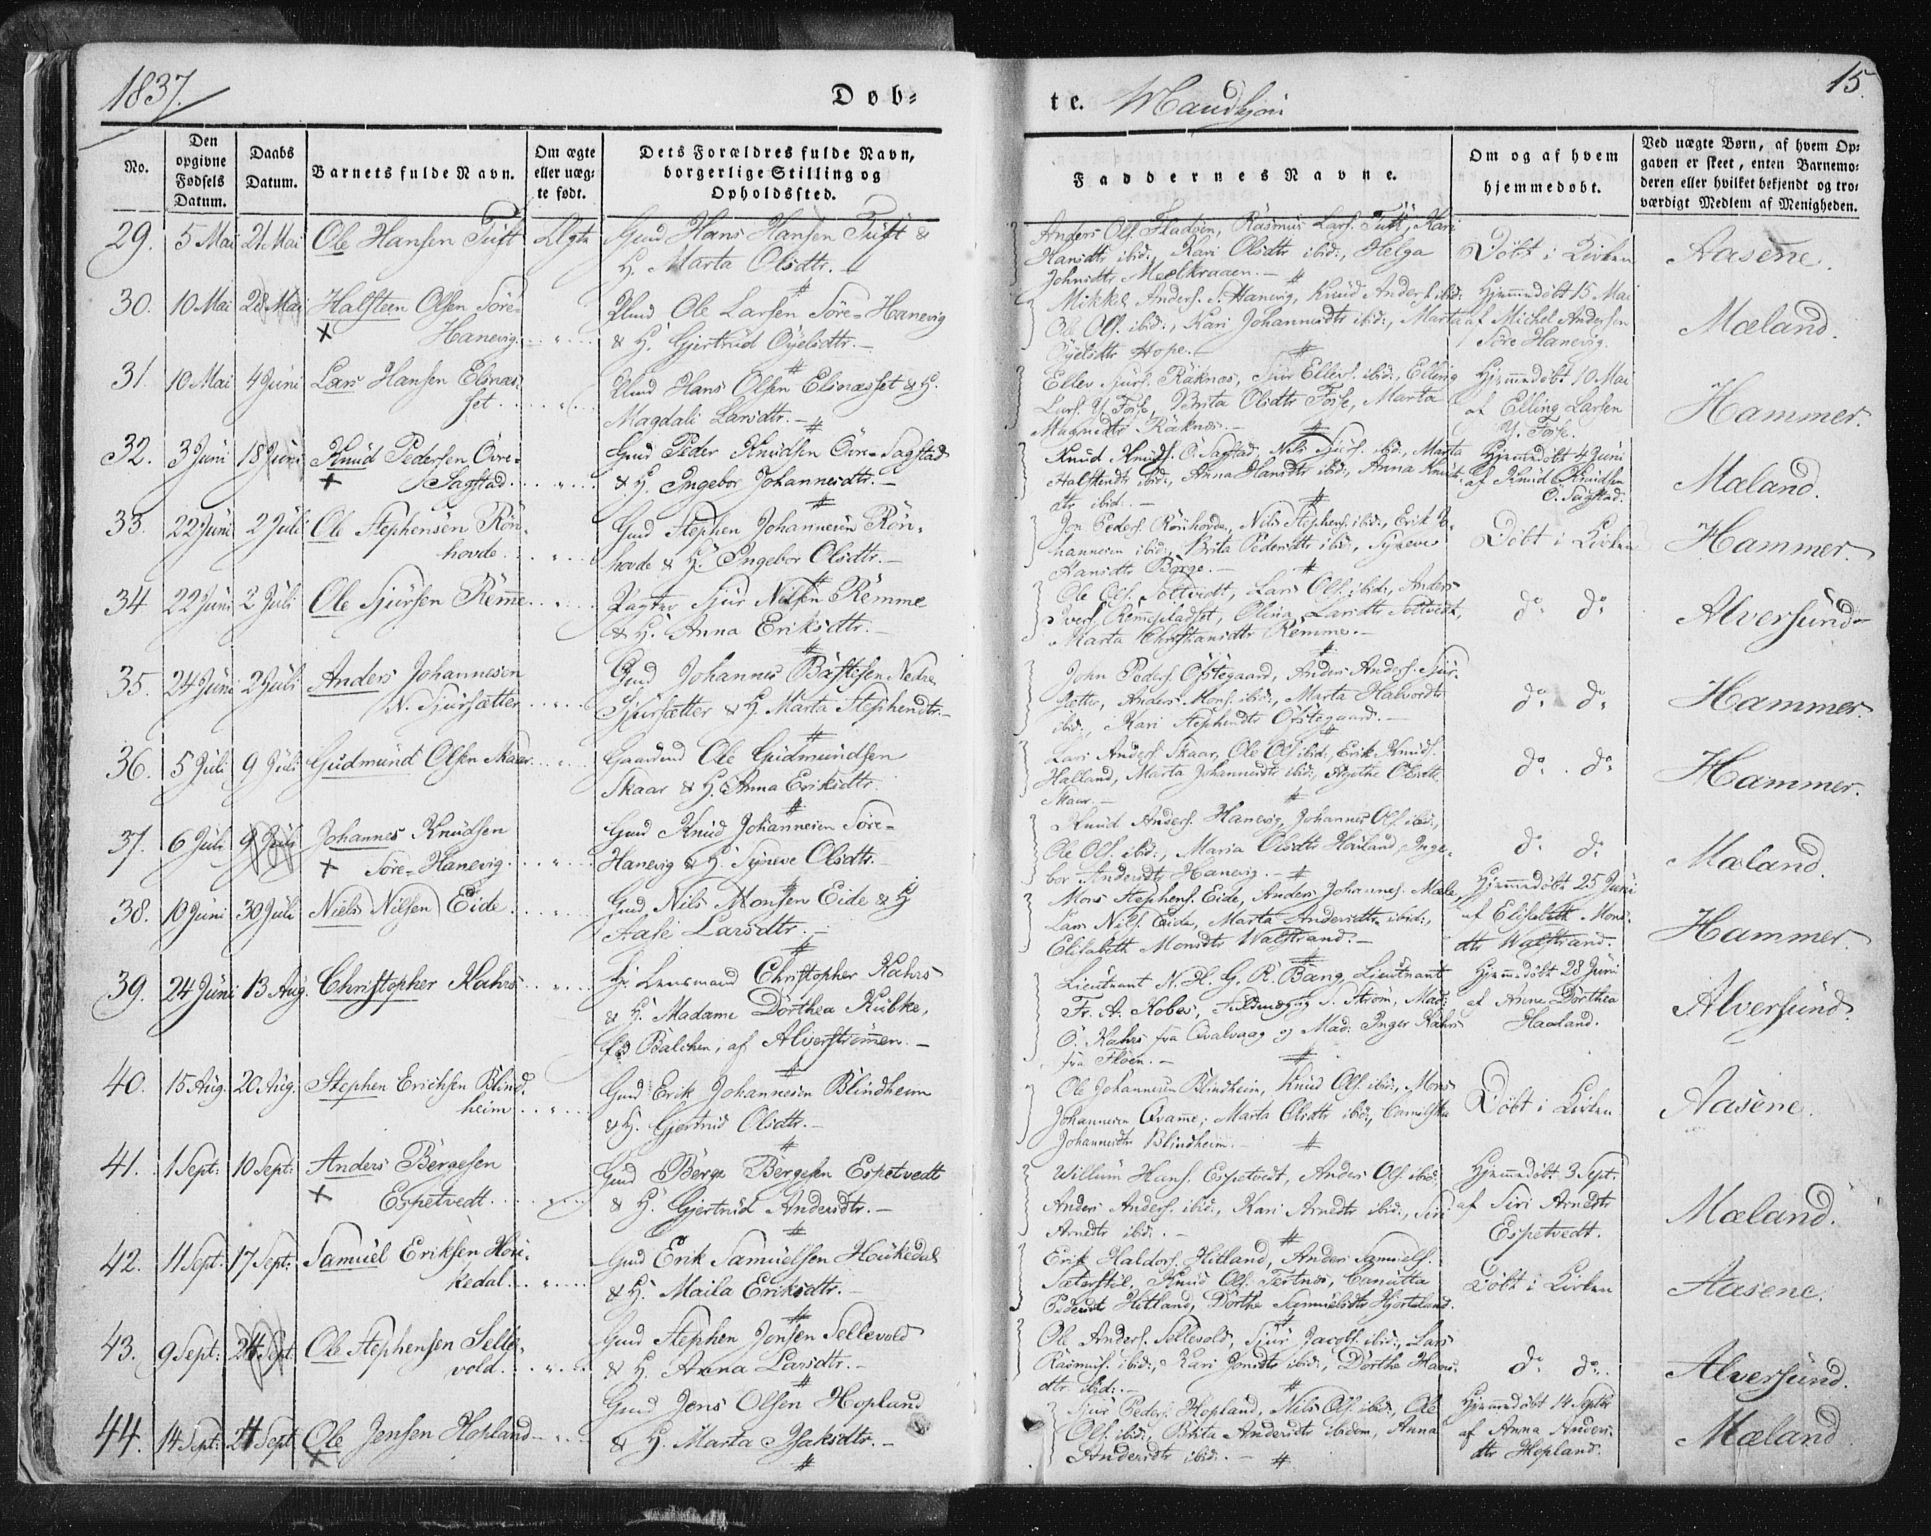 1837.
Døb-
te. Mandkjön
15.
No.
Den opgivne Fødsels Datum.
Daabs Datum.
Barnets fulde Navn.
Om ægte eller uæg-te født.
Dets Forældres fulde Navn, borgerlige Stilling og Opholdssted.
Faddernes Navne.
Om og af hvem hjemmedøbt.
Ved uægte Børn, af hvem Op-gaven er skeet, enten Barnemo-deren eller hvilket bekjendt og tro-værdigt Medlem af Menigheden.
29. 5 Mai 21 Mai Ole Hansen Tuft Ægte Gmd Hans Hansen Tuft &
H. Marta Olsdtr.
Anders Ols. Fladöen, Rasmus Lars. Tuft, Kari
Hansdtr ibid:, Kari Olsdtr ibid:, Helga
Johnsdtr
Döbt i Kirken
Aasene.
30. 10 Mai 28 Mai Halsteen Olsen Söre-
Hanevig
Ole Larsen Söre-Hanevig
& H. Gjertrud
Mikkel Anders. S. Hanevig, Knud Anders. ibid:
Ole Ols. ibid:, Kari Johannesdtr ibid:, Marta
Hope.
Hjemmedöbt 15 Mai
af Michel Andersen
Söre Hanevig.
Mæland.
31. 10 Mai 4 Juni Lars Hansen Elsnæs-
set
Hans Olsen Elsnæsset & H.
Magdali Larsdtr.
Eller Sjurs. Räknes, Sjur Ellers. ibid:, Elling
Lars. Y. Fosse, Brita Olsdtr Fosse, Marta
Magnedtr Räknes.
Hjemmedöbt 10 Mai
af Elling Larsen
Y. Fosse.
Hammer.
32. 3 Juni 18 Juni Knud Pedersen Övre-
Sagstad
Gmd Peder Knudsen Övre-Sagstad
& H. Ingebor Johannesdtr.
Knud Knuds. Ö. Sagstad, Nils Sjurs. ibid:, Marta
Halstendtr ibid:, Anna Hansdtr ibid:, Anna Knuds-
dtr ibid.
Hjemmedöbt 4 Juni
af Knud Knudsen
Ö. Sagstad.
Mæland.
33. 22 Juni 2 Juli Ole Stephensen Rön-
hovde
Gmd Stephen Johannesen Rön-
hovde & H. Ingebor Olsdtr.
Jon Peders. Rönhovde, Nils Stephens. ibid:, Erik Jo-
hannesen ibid:, Brita Pedersdtr ibid:, Syneve
Hansdtr Borge.
Döbt i Kirken
Hammer.
34 22 Juni 2 Juli Ole Sjursen Remme
Sjur Nilsen Remme
& H. Anna Eriksdtr.
Ole Ols. Toltvedt, Lars Ols. ibid:, Anders
Ivers. Remepladset, Olina Larsdtr Toltvedt,
Marta Christiansdtr Remme.
do do
Alversund
35. 24 Juni 2 Juli Anders Johannesen
N. Sjursætter
Gmd Johannes Bastisen Nedre
Sjursætter & H. Marta Stephensdtr.
John Peders. Ostegaard, Anders Anders. Sjur-
setter, Anders Mons. ibid:, Marta Halvordtr
ibid:, Kari Stephensdtr Ostegaard.
do do
Hammer.
36. 5 Juli 9 Juli Gudmund Olsen Skaar
Gaardmd Ole Gudmundsen
Skaar & H. Anna Eriksdtr.
Lars Anders. Skaar, Ole Ols. ibid:, Erik Knuds.
Halland, Marta Johannesdtr ibid:, Agathe Olsdtr
Skaar.
do do
Hammer.
37. 6 Juli 9 Juli Johannes Knudsen
Söre-Hanevig
Gmd Knud Johannesen Söre-
Hanevig & H. Syneve Olsdtr.
Knud Anders. Hanevig, Johannes Ols. ibid:,
Ole Ols. ibid:, Maria Olsdtr Haland, Inge-
bor Andersdtr Hanevig.
do do
Mæland.
38. 10 Juni 30 Juli Niels Nilsen Eide
Gmd. Nils Monsen Eide & H
Aase Larsdtr.
Mons Stephens. Eide, Anders Johannes. Mæle,
Lars Nils. Eide, Marta Andersdtr ibid:,
Elisabeth Monsdtr Walstrand.
Hjemmedöbt 25 Juni
af Elisabeth Mons-
dtr Walstrand.
Hammer.
39. 24 Juni 13 Aug. Christopher Kahrs
Hr. Lensmand Christopher Kahrs
& H. Madame Dorthea Kubke,
fød Balchen, af Alverströmmen.
Lieutnant N. H. G. R. Bang, Lieutnant
Fr. A. Kobes, S. Ström, Mad:
O. Kahrs fra Qvalvaag og Mad: Inger Kahrs
fra Floen.
Hjemmedöbt 28 Juni
af Anne Dorthea
Haaland.
Alversund.
40. 15 Aug. 20 Aug. Stephen Erichsen Blind-
heim
Gmd Erik Johannesen Blindheim
& H. Gjertrud Olsdtr.
Ole Johannesen Blindheim, Knud Ols. ibid:, Mons
Johannesen Qvame, Marta Olsdtr ibid:,
Johannesdtr Blindheim.
Döbt i Kirken
Aasene.
41. 1 Sept: 10 Sept: Anders Bergesen
Espetvedt
Gmd Berge Bergesen Espetvedt
& H. Gjertrud Andersdtr.
Willum Hans. Espetvedt, Anders Ols. ibid:
Anders Anders. ibid:, Kari Arnedtr ibid:, Siri
Arnedtr ibid:
Hjemmedöbt 3 Sept:
af Siri Arnedtr
Espetvedt.
Mæland.
42. 11 Sept: 17 Sept: Samuel Eriksen Hou-
kedal
Gmd Erik Samuelsen Houkedal
& H. Maila Eriksdtr.
Erik Haldors. Hitland, Anders Samuels.
Sæterstöl, Knud Ols. Tertnes,
Pedersdtr Hitland, Dorthe Samuelsdtr Hjorteland.
Döbt i Kirken
Aasene.
43. 9 Sept: 24 Sept Ole Stephensen Selle-
vold
Gmd Stephen Jonsen Sellevold
& H. Anna Larsdtr.
Ole Anders. Sellevold, Sjur Jacobs. ibid:, Lars
Rasmus. ibid:, Kari Jonsdtr ibid:, Dorthe Hans-
dtr ibid:.
do do
Alversund.
44. 14 Sept: 24 Sept Ole Jensen Hopland
Gmd Jens Olsen Hopland
& H. Marta Isaksdtr.
Sjur Peders. Hopland, Nils Ols. ibid:, Ole
Ols. ibid:, Brita Andersdtr ibidem, Anna
Andersdtr ibid:.
Hjemmedöbt 14 Septbr
af Anna Anders-
dtr Hopland.
Mæland